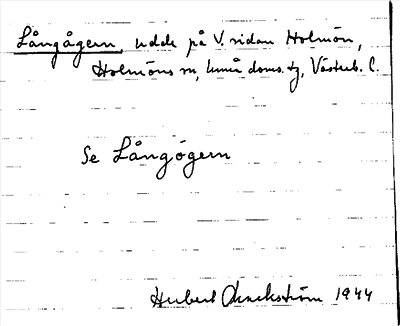 Långågern, udde på V. sidan Holmön,
Holmöns sn, Umeå doms. tg, Västerb. l.
Se Långögern
Hubert 1944